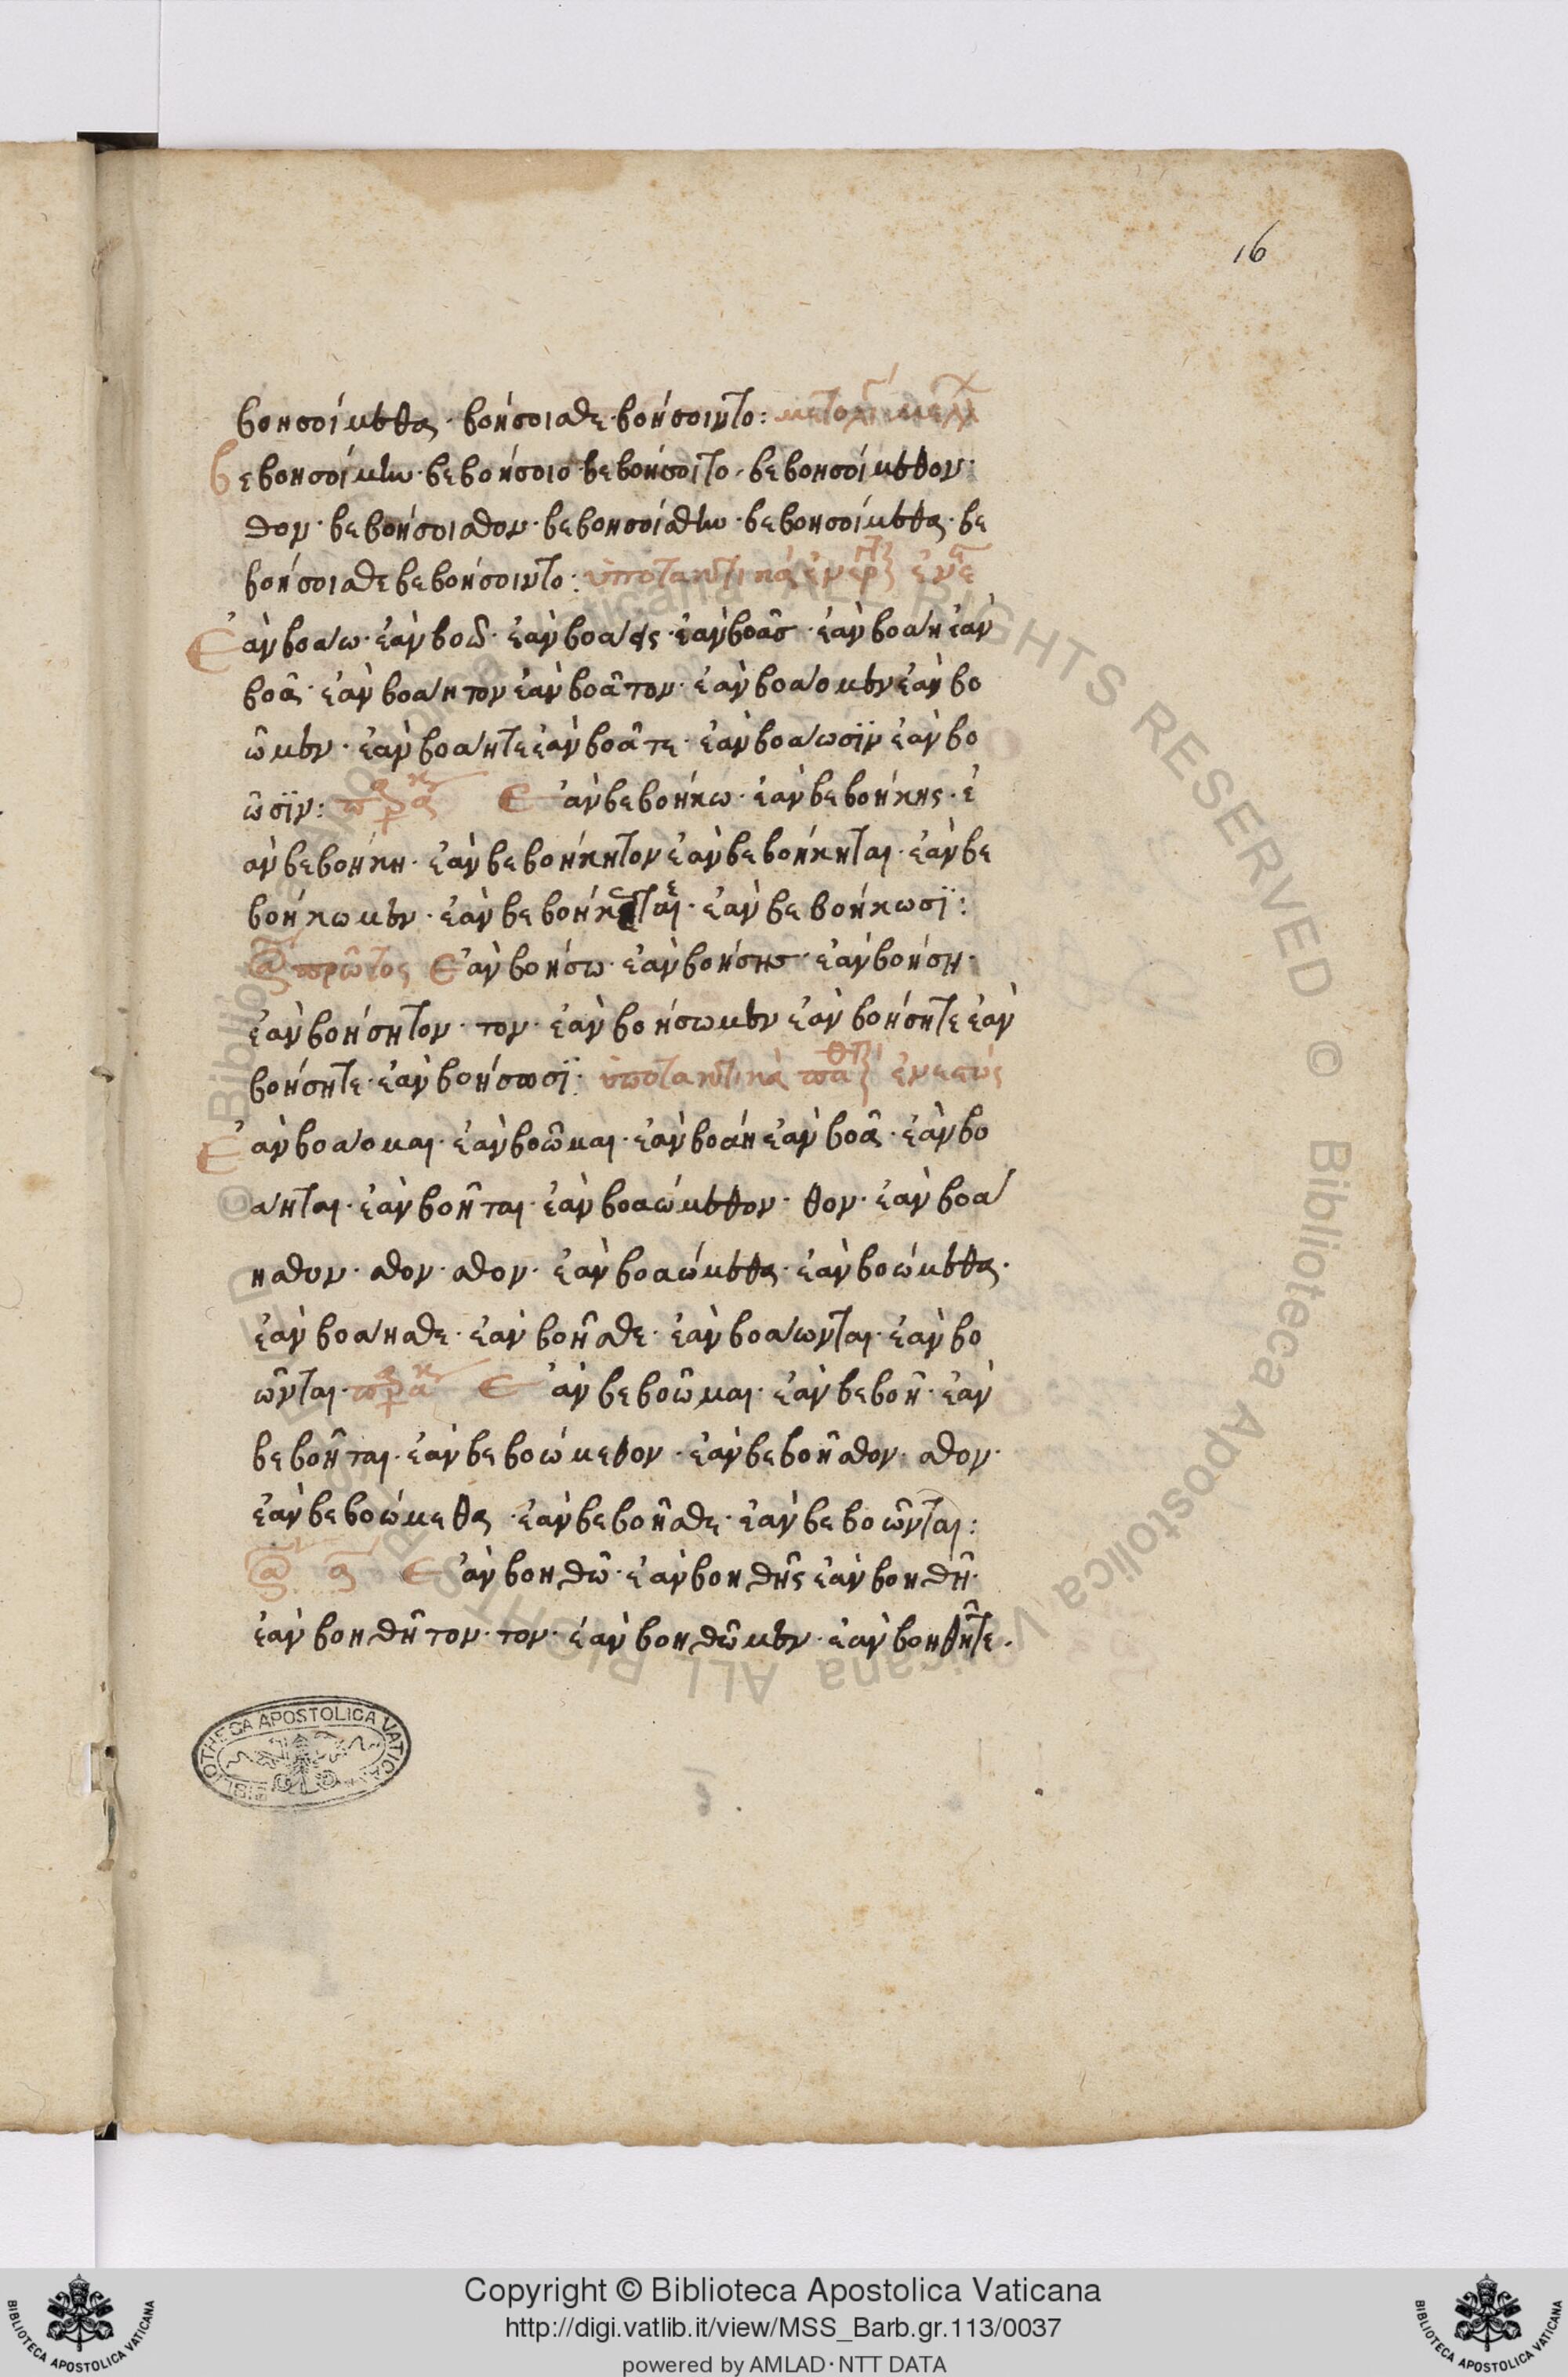 16
βοησοίμεθα· βοήσοισθε· βοήσοιντο:
βεβοησοίμην· βεβοήσοιο· βεβοήσοιτο· βεβοησοίμεθον·
θον· βεβοήσοισθον· βεβοησοίσθην· βεβοησοίμεθα· βε
βοήσοισθε βεβοήσοιντο: ὑποτακτικὰ
Ἐὰν βοάω· ἐὰν βοῶ· ἐὰν βοάης· ἐὰν βοᾶσ· ἐὰν βοάη ἐὰν
βοᾶ· ἐὰν βοάητον ἐὰν βοᾶτον· ἐὰν βοάομεν ἐὰν βο
ῶμεν· ἐὰν βοάητε ἐὰν βοᾶτε· ἐὰν βοάωσϊν ἐὰν βο
ῶσϊν: Ἐὰν βεβοήκω· ἐὰν βεβοήκης· ἐ
ὰν βεβοήκη· ἐὰν βεβοήκητον ἐὰν βεβοήκηται· ἐὰν βε
βοήκωμεν· ἐὰν βεβοήκ · ἐὰν βεβοήκωσϊ:
πρῶτος Ἐὰν βοήσω· ἐὰν βοήσησ· ἐὰν βοήση·
ἐὰν βοήσητον· τον· ἐὰν βοήσωμεν ἐὰν βοήσητε ἐὰν
βοήσητε· ἐὰν βοήσωσϊ: ὑποτακτικὰ
Ἐὰν βοάομαι· ἐὰν βοῶμαι· ἐὰν βοάη ἐὰν βοᾶ· ἐὰν βο
άηται· ἐὰν βοῆται· ἐὰν βοαώμεθον· θον· ἐὰν βοά
ησθον· σθον· σθον· ἐὰν βοαώμεθα· ἐὰν βοώμεθα·
ἐὰν βοάησθε· ἐὰν βοῆσθε· ἐὰν βοάωνται· ἐὰν βο
ῶνται· Ἐὰν βεβοῶμαι· ἐὰν βεβοῆ· ἐὰν
βεβοῆται· ἐὰν βεβοώμεθον· ἐὰν βεβοῆσθον· σθον·
ἐὰν βεβοώμεθα· ἐὰν βεβοῆσθε· ἐὰν βεβοῶνται:
Ἐὰν βοηθῶ· ἐὰν βοηθῆς ἐὰν βοηθῆ·
ἐὰν βοηθῆτον· τον· ἐὰν βοηθῶμεν· ἐὰν βοηθῆτε.
BIBLIOTHECA APOSTOLICA VATICANA
© Biblioteca Apostolica Vaticana ALL RIGHTS RESERVED © Biblioteca Apostolica Vaticana ALL RIGHTS RESERVED
Copyright © Biblioteca Apostolica Vaticana
http://digi.vatlib.it/view/MSS_Barb.gr.113/0037
powered by AMLAD・NTT DATA
BIBLIOTECA APOSTOLICA VATICANA
BIBLIOTECA APOSTOLICA VATICANA